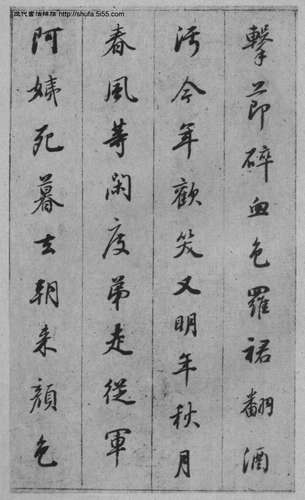 现代书法辉煌 http://shufa.5i55.com
擊節碎血色羅裙翻酒
污今年歡笑又明年秋月
春風等閑度弟走從軍
阿姨死暮去朝来顏色